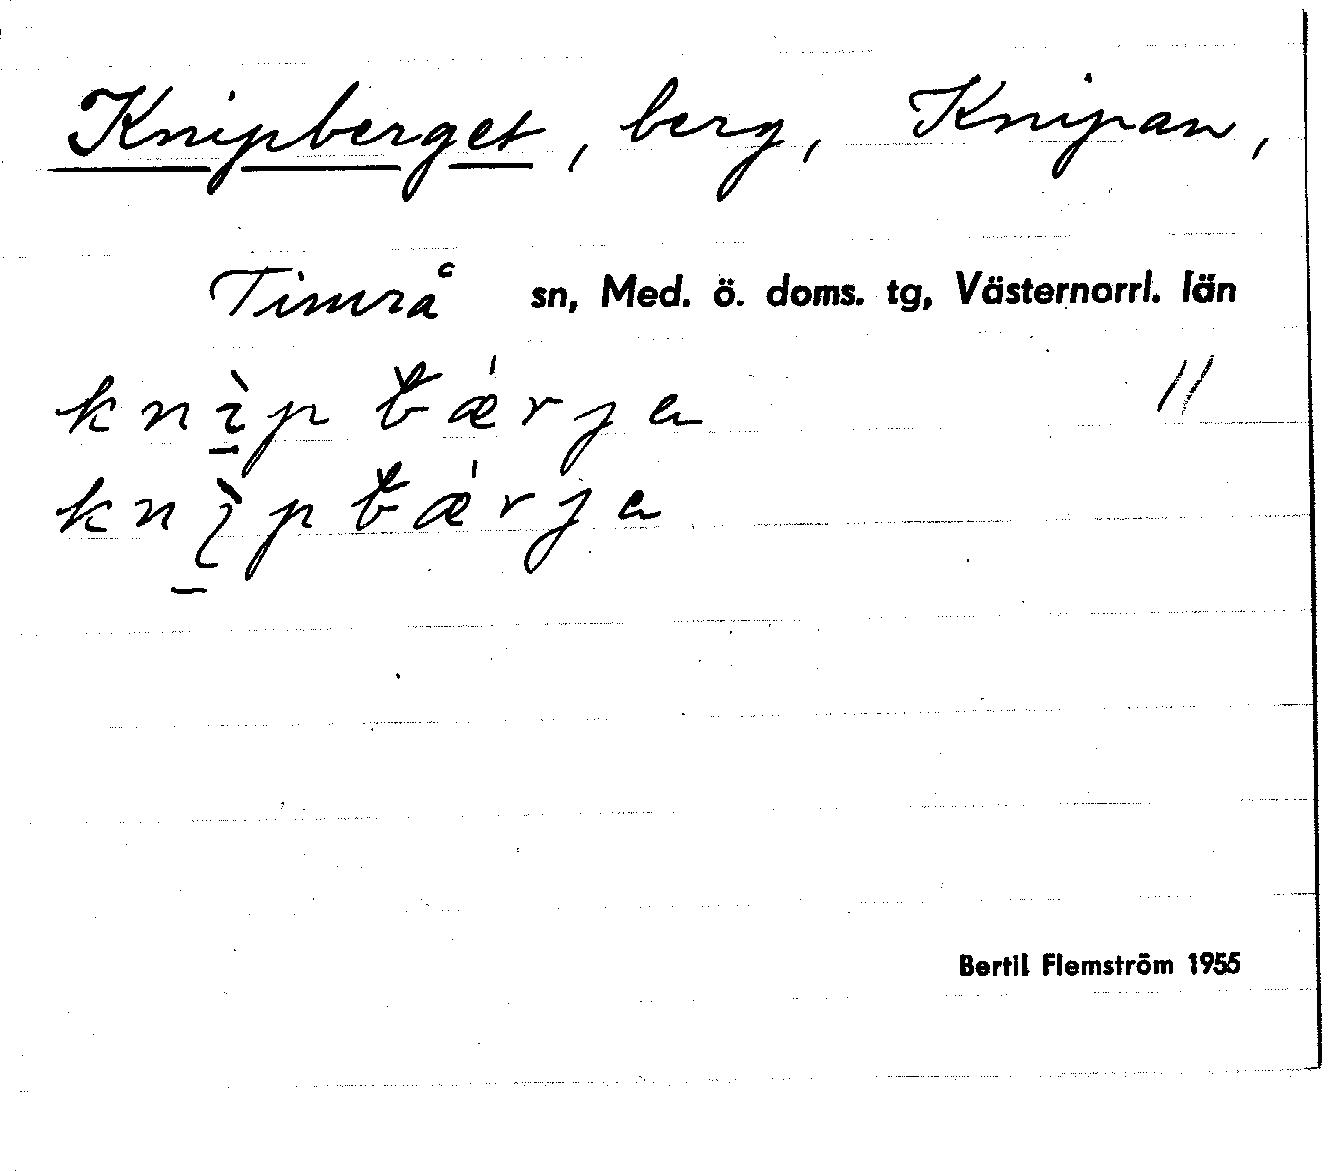 Knipberget, berg, Knipan,
Timrå sn, Med. ö. doms. tg, Västernorrl. län
knìp bǽrja //
knìpbǽrja
Bertil Flemström 1955